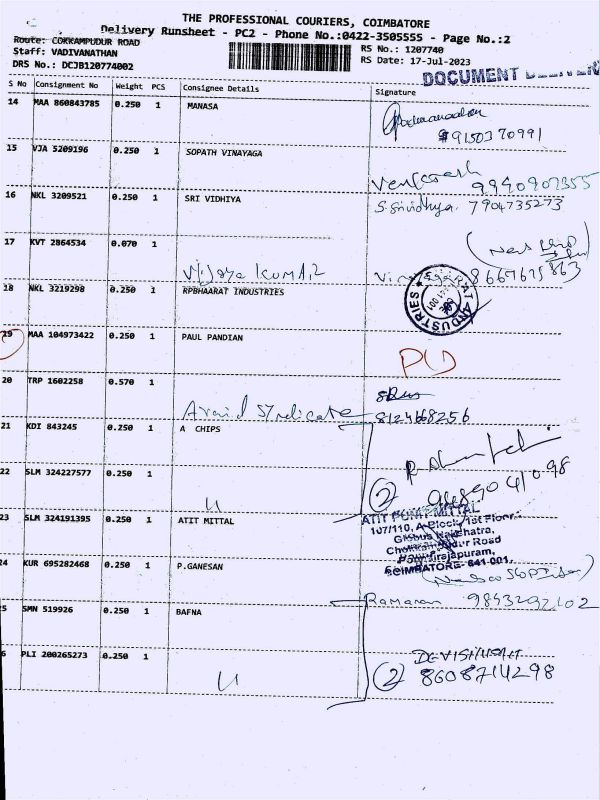 THE PROFESSIONAL COURIERS, COIMBATORE
Delivery Runsheet - PC2 - Phone No.:0422-3505555 - Page No.:2
Route: COKKAMPUDUR ROAD
Staff: VADIVANATHAN
DRS No.: DCJB120774002
RS No.: 1207740
RS Date: 17-Jul-2023
DOCUMENT
S No Consignment No Weight PCS Consignee Details Signature
14 MAA 860843785 0.250 1 MANASA
9150370991
15 VJA 5209196 0.250 1 SOPATH VINAYAGA
Venkatesh 9940907355
16 NKL 3209521 0.250 1 SRI VIDHIYA S.Srividhya. 7904735273
17 KVT 2864534 0.070 1
Vijaya KUMAR
18 NKL 3219298 1 RPBHAARAT INDUSTRIES
INDUSTRIES
19 MAA 104973422 0.250 1 PAUL PANDIAN
20 TRP 1602258 0.570 1
Arvind Syndicate 8124668256
21 KDI 843245 0.250 1 A CHIPS
22 SLM 324227577 0.250 1
2
23 SLM 324191395 0.250 1 ATIT MITTAL
ATIT PUNIT MITTAL
107/110, A-Block, 1st Floor,
Chokkampudur Road
COIMBATORE- 641 001.
24 KUR 695282468 0.250 1 P.GANESAN
25 SMN 519926 0.250 1 BAFNA
26 PLI 200265273 0.250 1
2 8608714298